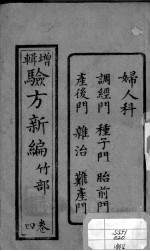 婦人科
調經門 種子門 胎前門
產後門 雜治 難產門
增輯
驗方新編 竹部
卷四